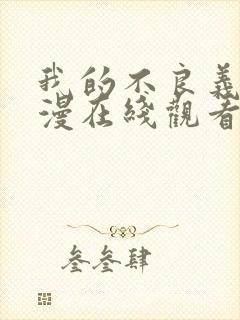 我的不良義
漫在綫觀看
叄叄肆